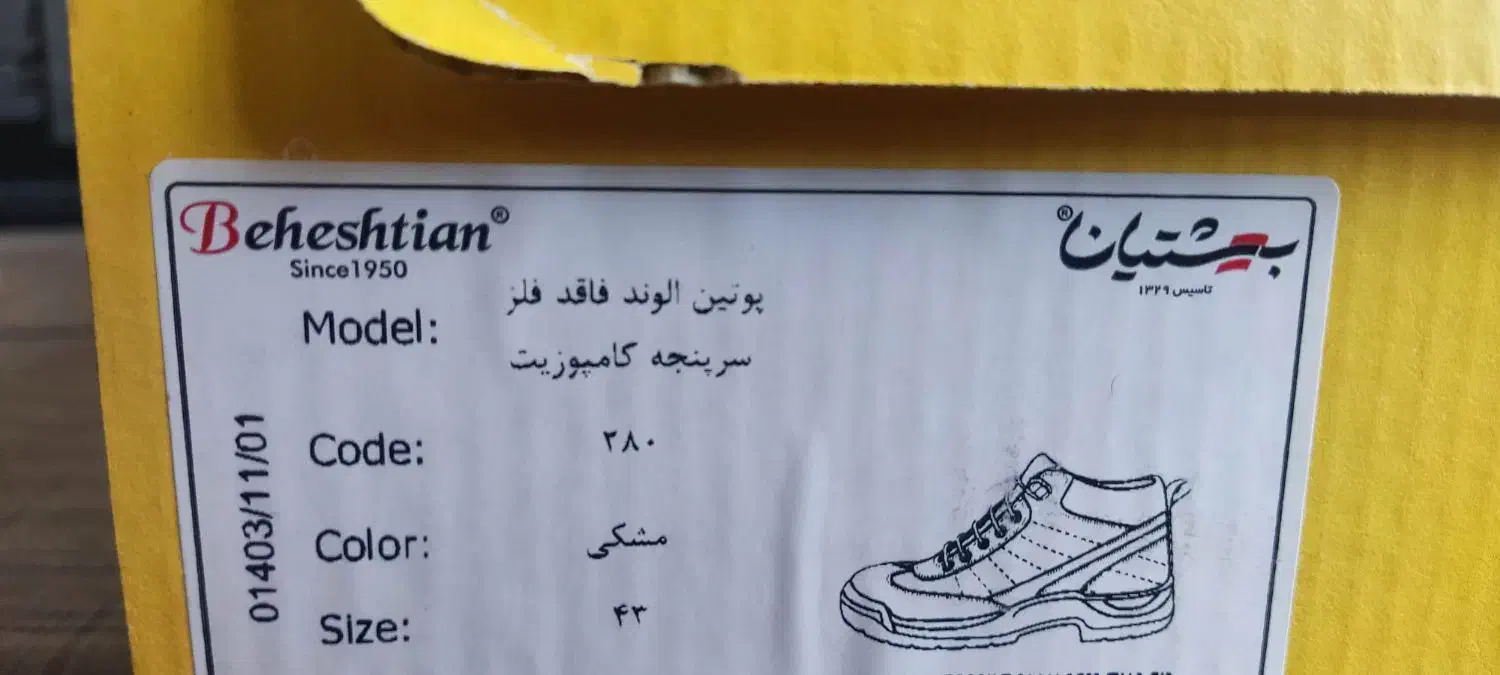 Beheshtian®
Since1950
بهشتیان®
تاسیس ۱۳۲۹
Model:
پوتین الوند فاقد فلز
سرپنجه کامپوزیت
Code:
۲۸۰
Color:
مشکی
Size:
۴۳
01403/11/01